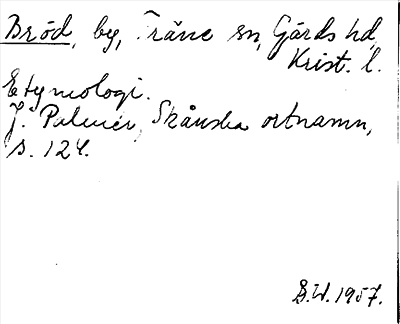 Bröd, by, Träne sn, Gärds hd,
Krist. l.
Etymologi.
J. Palmér, Skånska ortnamn,
s. 124.
B.W. 1957.